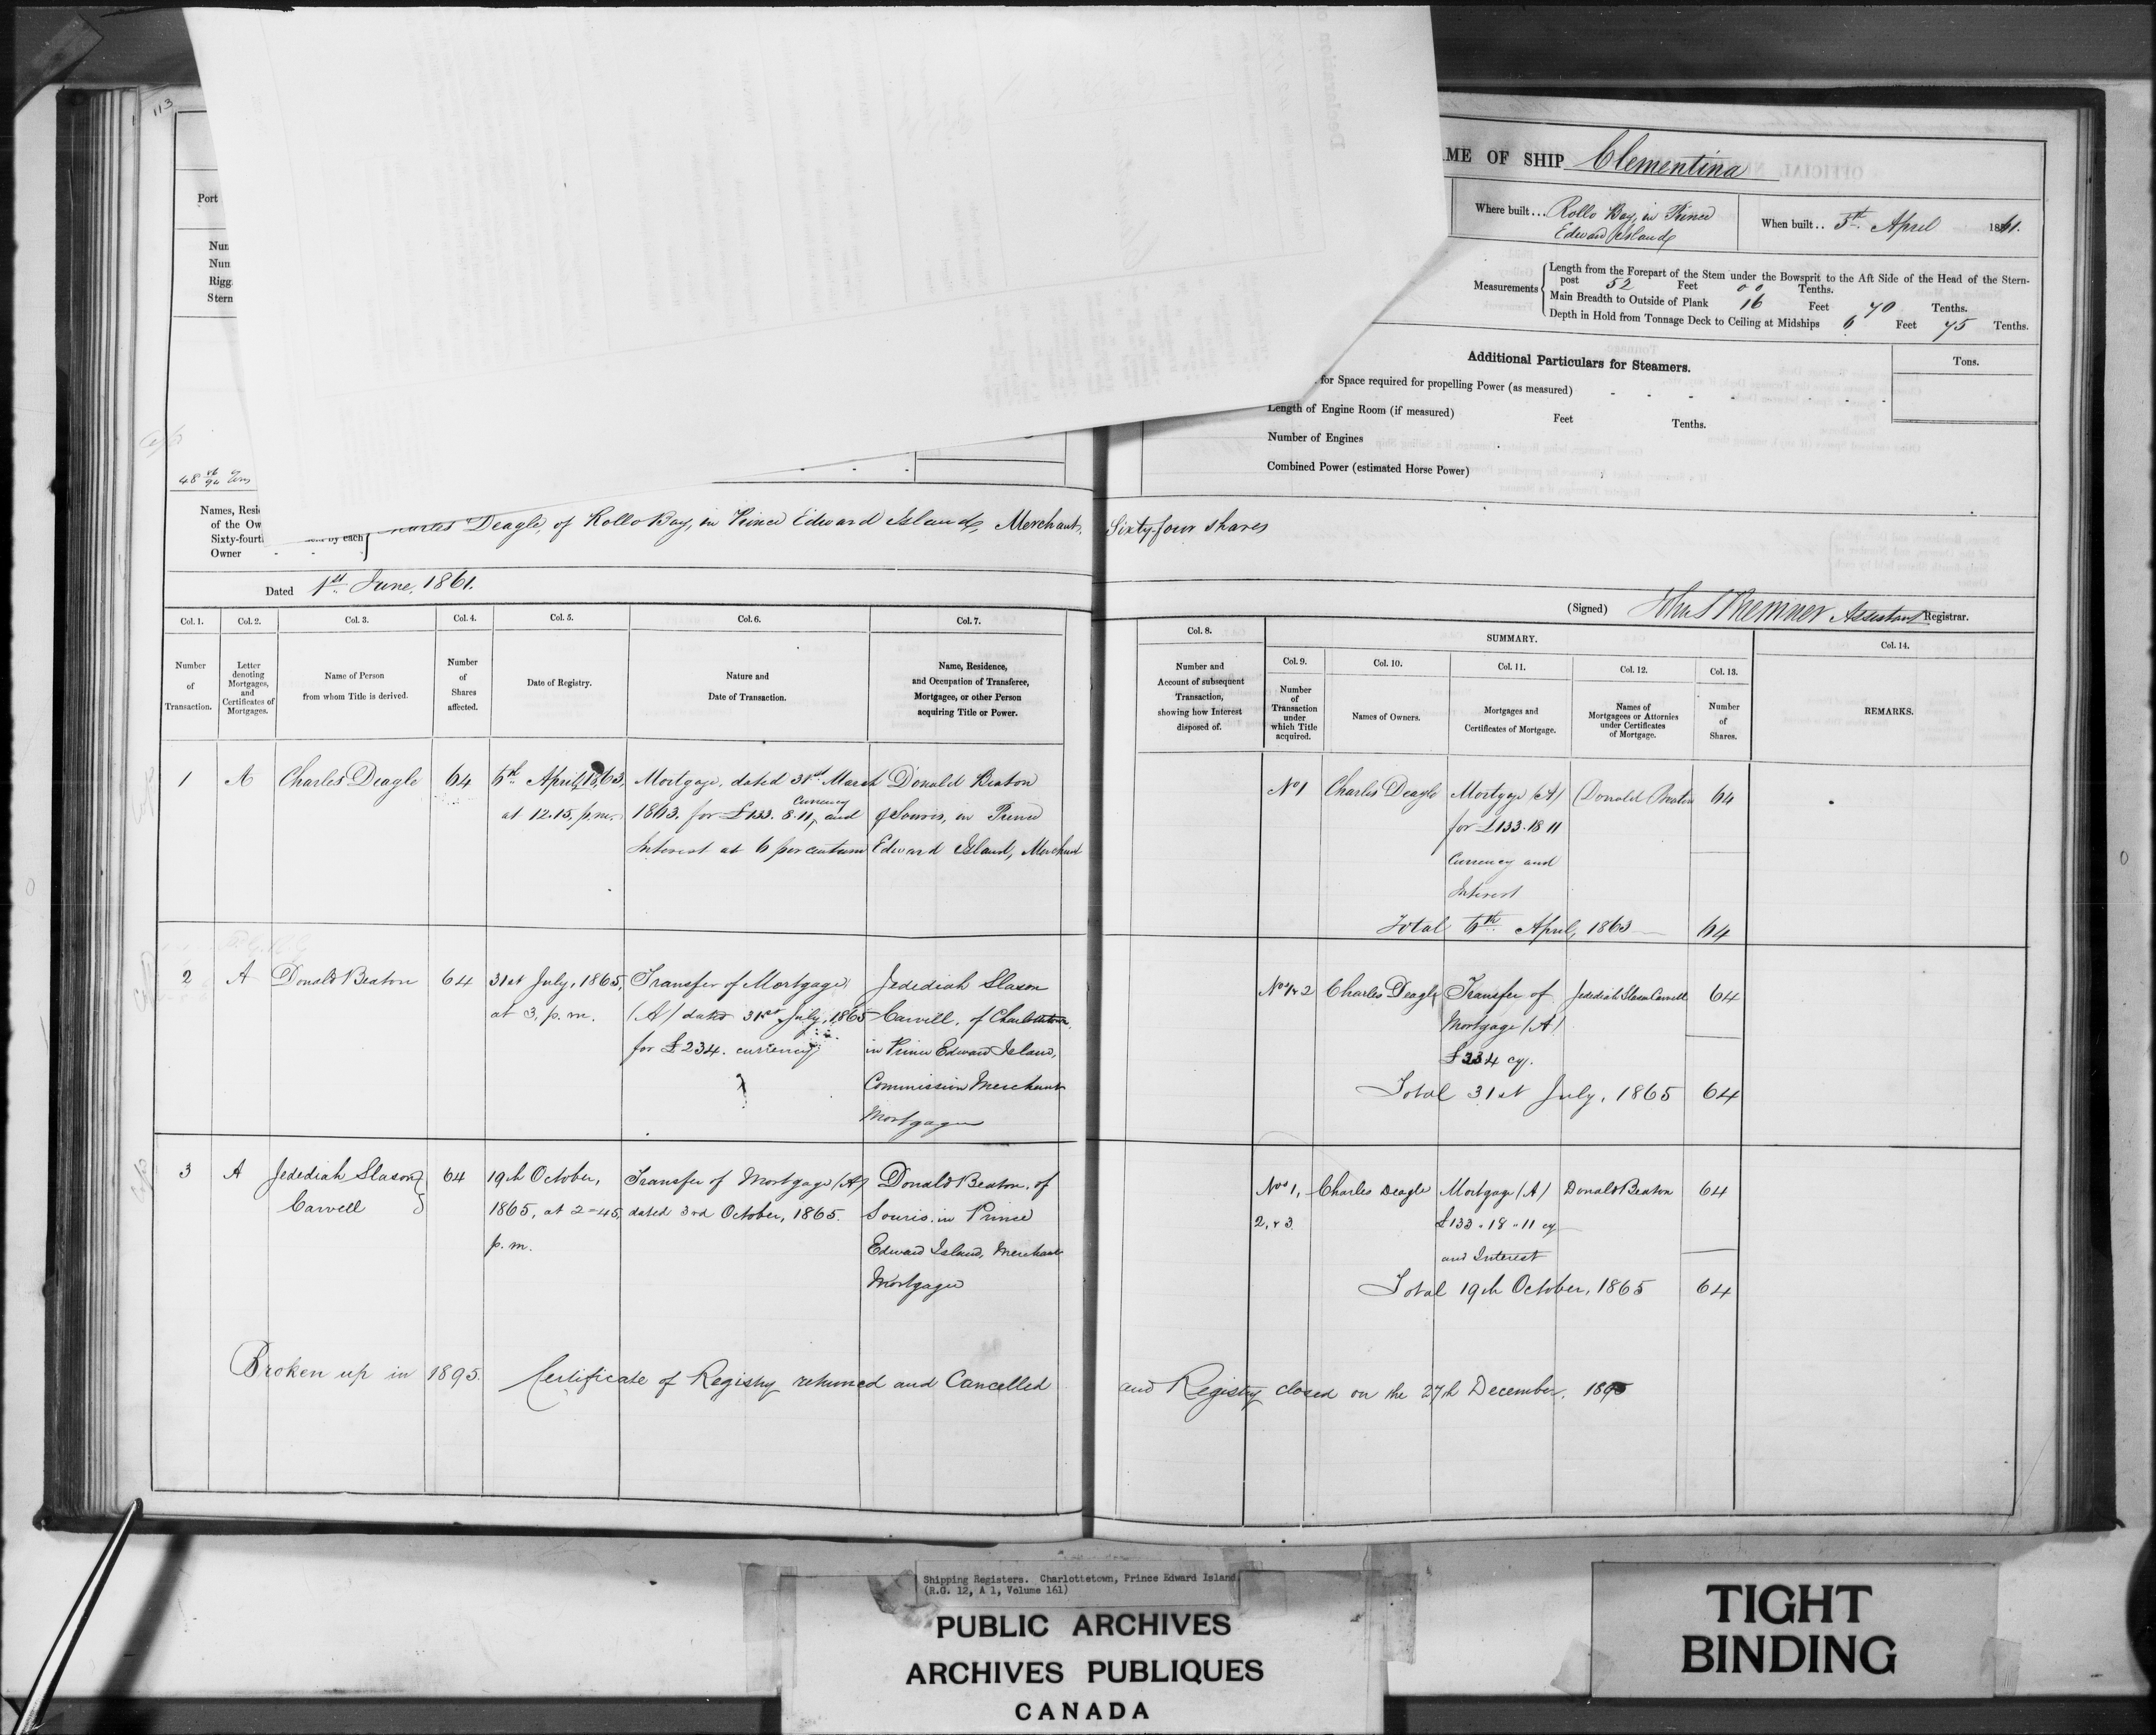 113
AME OF SHIP Clementina
Port
Where built... Rollo Bay, in Prince
Edward Island
When built.. 5th April 1861.
Num
Num
Rigg
Stern
Measurements
Length from the Forepart of the Stem under the Bowsprit to the Aft Side of the Head of the Stern-
post 52 Feet 00 Tenths.
Main Breadth to Outside of Plank 16 Feet 70 Tenths.
Depth in Hold from Tonnage Deck to Ceiling at Midships 6 Feet 75 Tenths.
Additional Particulars for Steamers.
Tons.
for Space required for propelling Power (as measured)
Length of Engine Room (if measured) Feet Tenths.
Number of Engines
Combined Power (estimated Horse Power)
48
Names, Resid
of the Ow
Sixty-fourth by each
Owner
Charles Deagle, of Rollo Bay, in Prince Edward Island, Merchant, Sixty-four shares
Dated 1st June, 1861.
(Signed) Assistant Registrar.
Col. 1. Col. 2. Col. 3. Col. 4. Col. 5. Col. 6. Col. 7. Col. 8. SUMMARY. Col. 14.
Col. 9. Col. 10. Col. 11. Col. 12. Col. 13.
Number
of
Transaction.
Letter
denoting
Mortgages,
and
Certificates of
Mortgages.
Name of Person
from whom Title is derived.
Number
of
Shares
affected.
Date of Registry.
Nature and
Date of Transaction.
Name, Residence,
and Occupation of Transferee,
Mortgagee, or other Person
acquiring Title or Power.
Number and
Account of subsequent
Transaction,
showing how Interest
disposed of.
Number
of
Transaction
under
which Title
acquired.
Names of Owners.
Mortgages and
Certificates of Mortgage.
Names of
Mortgagees or Attornies
under Certificates
of Mortgage.
Number
of
Shares.
REMARKS.
1 A Charles Deagle 64
6th April, 1863,
at 12.15, p.m.
Mortgage, dated 31st March
1863. for £133. 8.11, Currency and
Interest at 6 per centum
Donald Beaton
of Souris, in Prince
Edward Island, Merchant
No 1 Charles Deagle
Mortgage (A)
for £133.18 11
Currency and
Interest
Donald Beaton 64
Total 6th April, 1863 64
2 A Donald Beaton 64
31st July, 1865,
at 3, p.m.
Transfer of Mortgage
(A) dated 31st July, 1865
for £234. currency
Jedediah Slason
Carvell, of Charlottetown
in Prince Edward Island,
Commission Merchant
Mortgagee
Nos 1 & 2 Charles Deagle
Transfer of
Mortgage (A)
£234 cy.
Jedediah Slason Carvell 64
Total 31st July, 1865 64
3 A Jedediah Slason
Carvell
64
19th October,
1865, at 2-45,
p.m.
Transfer of Mortgage (A)
dated 3rd October, 1865.
Donald Beaton, of
Souris, in Prince
Edward Island, Merchant
Mortgagee
Nos 1,
2, & 3
Charles Deagle
Mortgage (A)
£133 " 18 " 11 cy
and Interest
Donald Beaton 64
Total 19th October, 1865 64
Broken up in 1895. Certificate of Registry returned and Cancelled and Registry closed on the 27th December. 1895
Shipping Registers. Charlottetown, Prince Edward Island.
(R.G. 12, A 1, Volume 161)
PUBLIC ARCHIVES
ARCHIVES PUBLIQUES
CANADA
TIGHT
BINDING